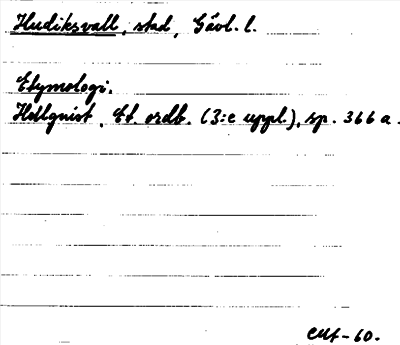 Hudiksvall, stad, Gävl. l.
Etymologi.
Hellquist, Et. ordb. (3:e uppl.), sp. 366 a.